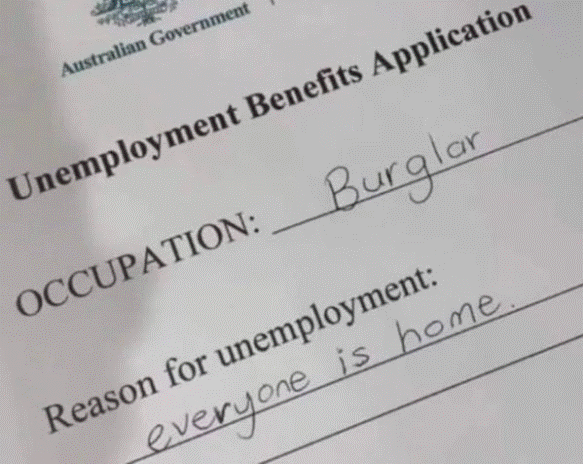 Australian Government
Unemployment Benefits Application
OCCUPATION: Burglar
Reason for unemployment:
everyone is home.